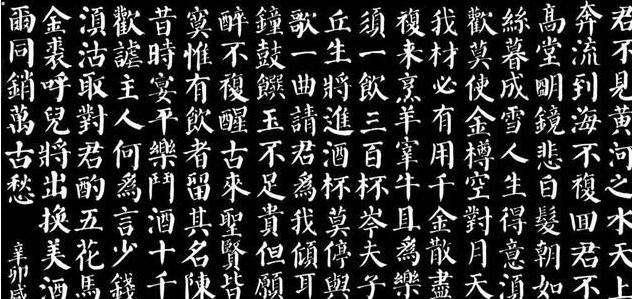 君不見黃河之水天上
奔流到海不複回君不
高堂明鏡悲白髮朝如
絲暮成雪人生得意湏
歡莫使金樽空對月天
我材必有用千金散盡
複来烹羊宰牛且為樂
須一飲三百杯岑夫子
丘生將進酒杯莫停與
歌一曲請君為我傾耳
鐘鼓饌玉不足貴但願
醉不複醒古來聖賢皆
寞惟有飲者留其名陳
昔時宴平樂鬥酒十千
歡謔主人何為言少錢
湏沽取對君酌五花馬
金裘呼兒將出換美酒
爾同銷萬古愁 辛卯咸